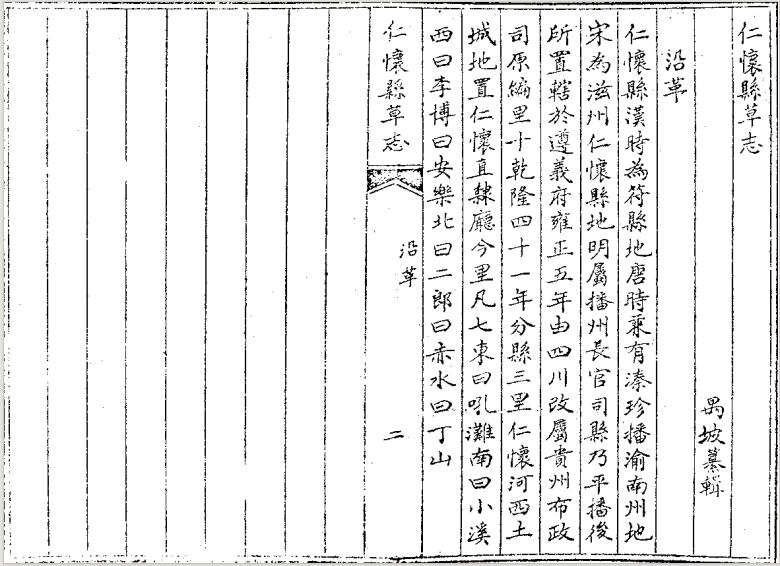 仁懷縣草志
禺坡纂輯
沿革
仁懷縣漢時為符縣地唐時兼有溱珍播渝南州地
宋為滋州仁懷縣地明屬播州長官司縣乃平播後
所置轄於遵義府雍正五年由四川改屬貴州布政
司原編里十乾隆四十一年分縣三里仁懷河西土
城地置仁懷直隸廳今里凡七東曰吼灘南曰小溪
西曰李博曰安樂北曰二郎曰赤水曰丁山
仁懷縣草志
沿革
二